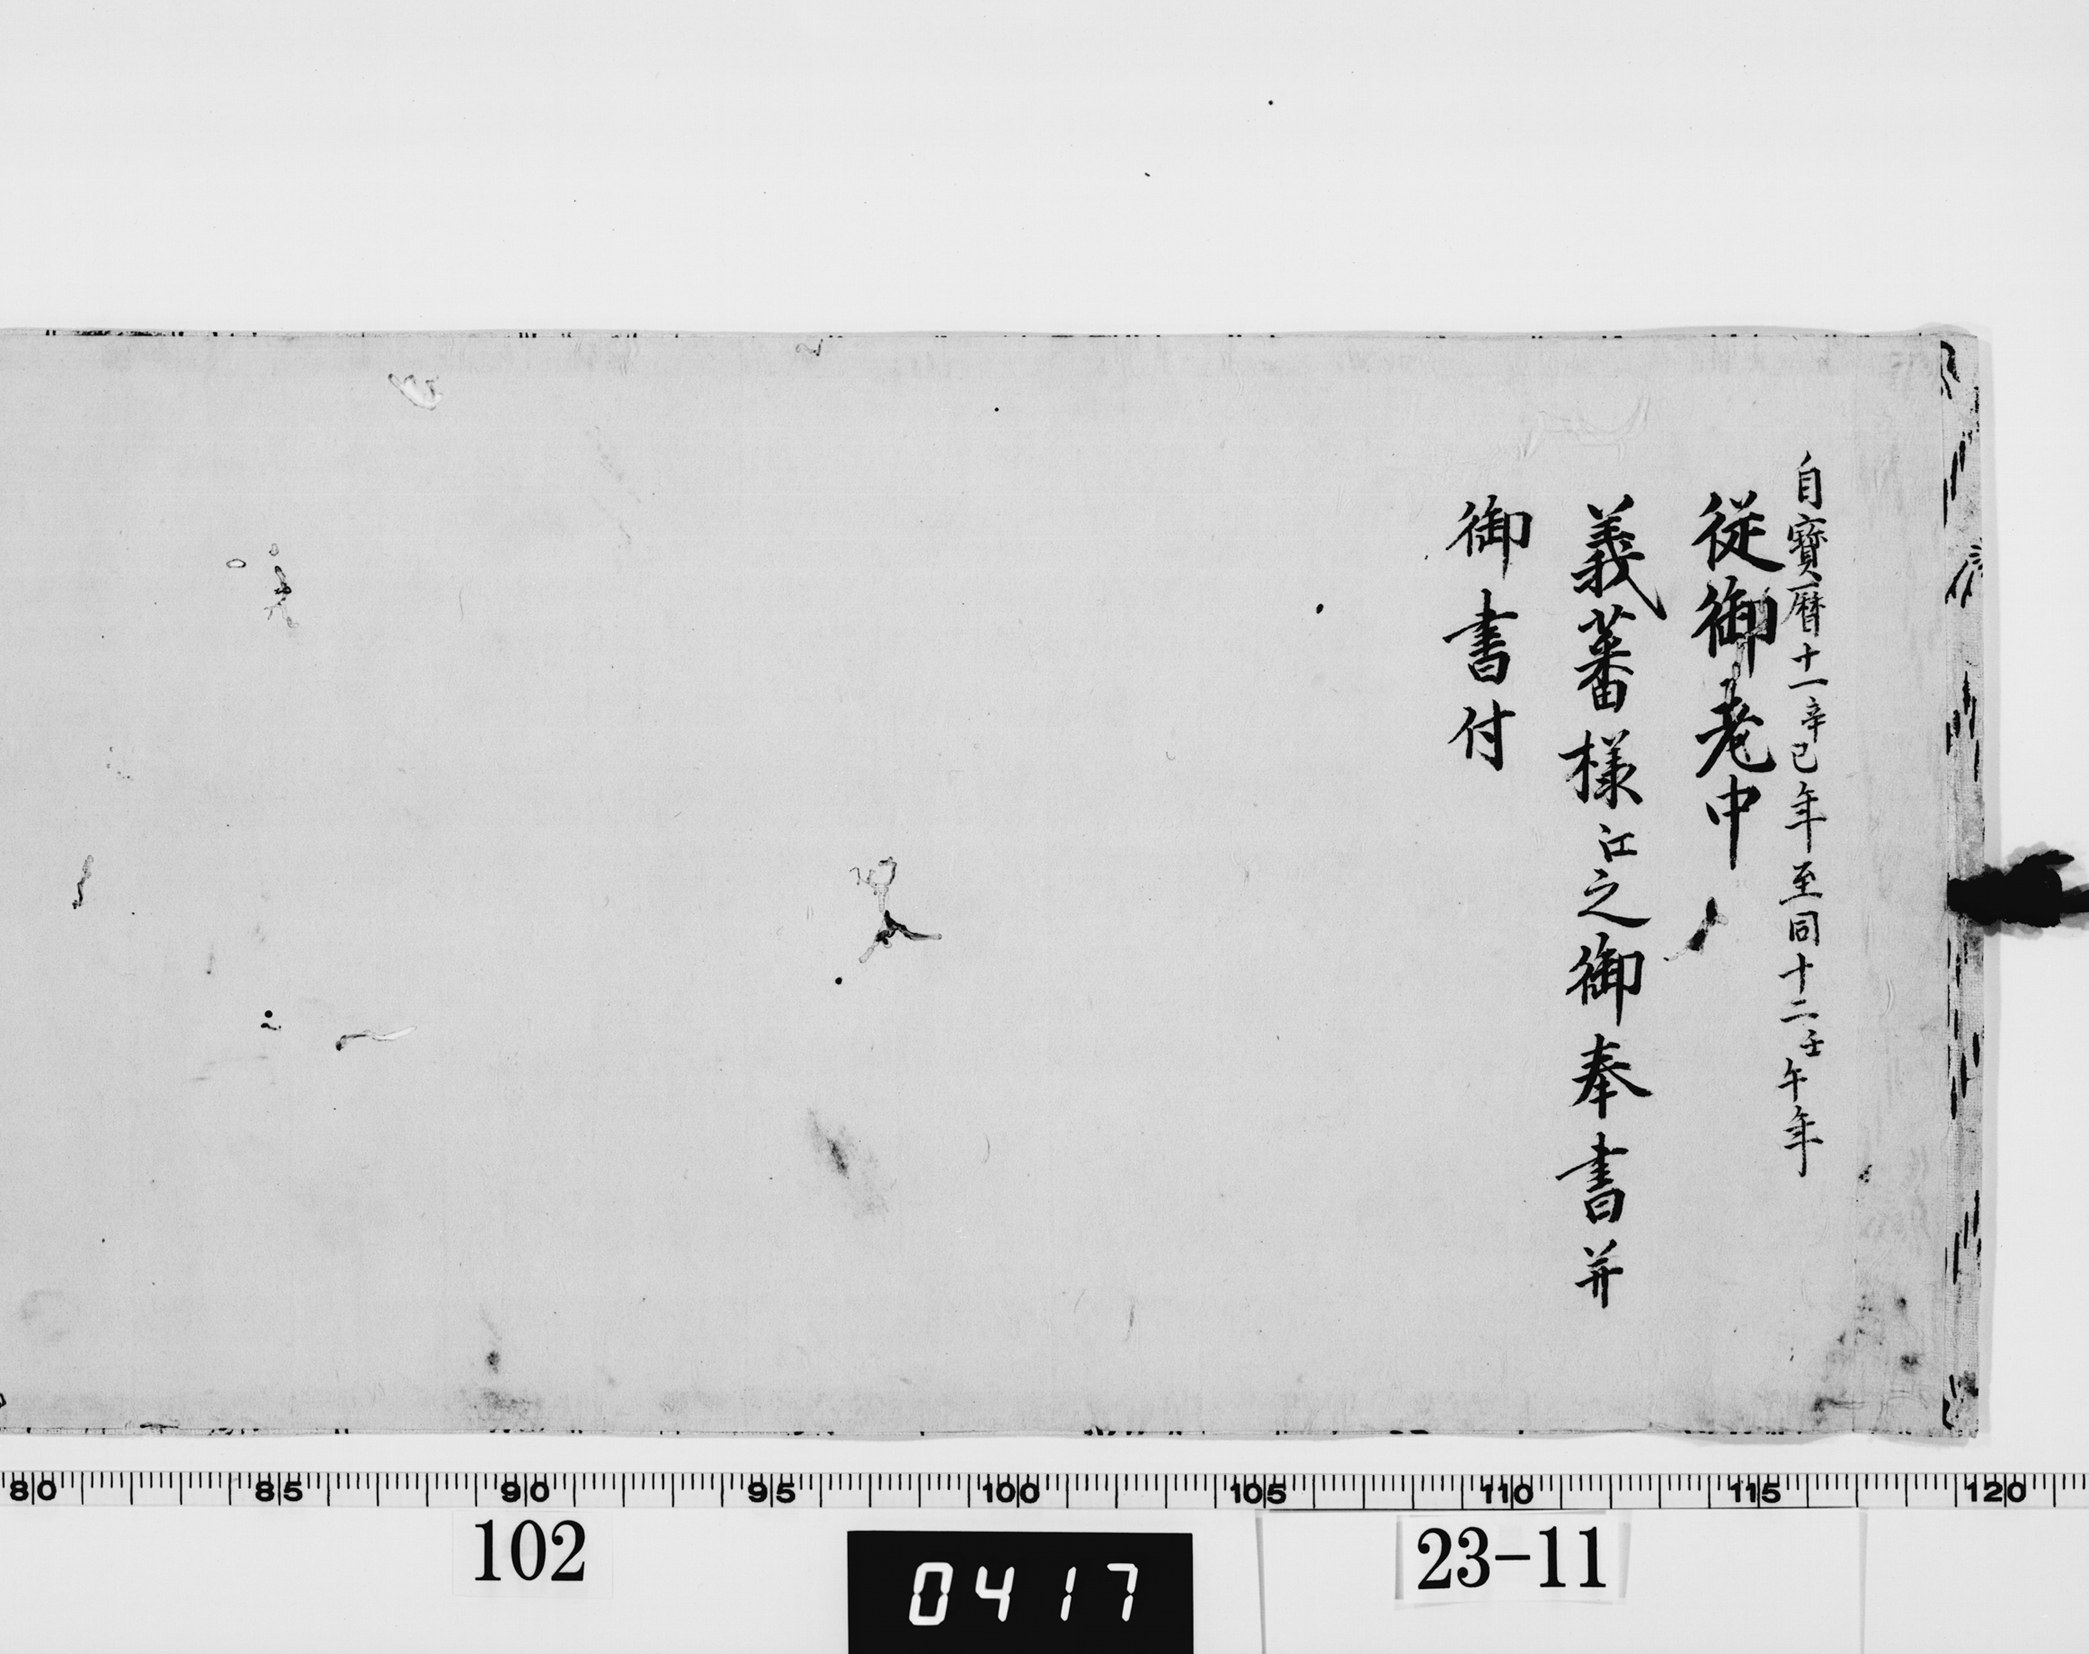 自寶暦十一辛巳年至同十二壬午年
従御老中
義蕃様江之御奉書并
御書付
80 85 90 95 100 105 110 115 120
102
0417
23-11